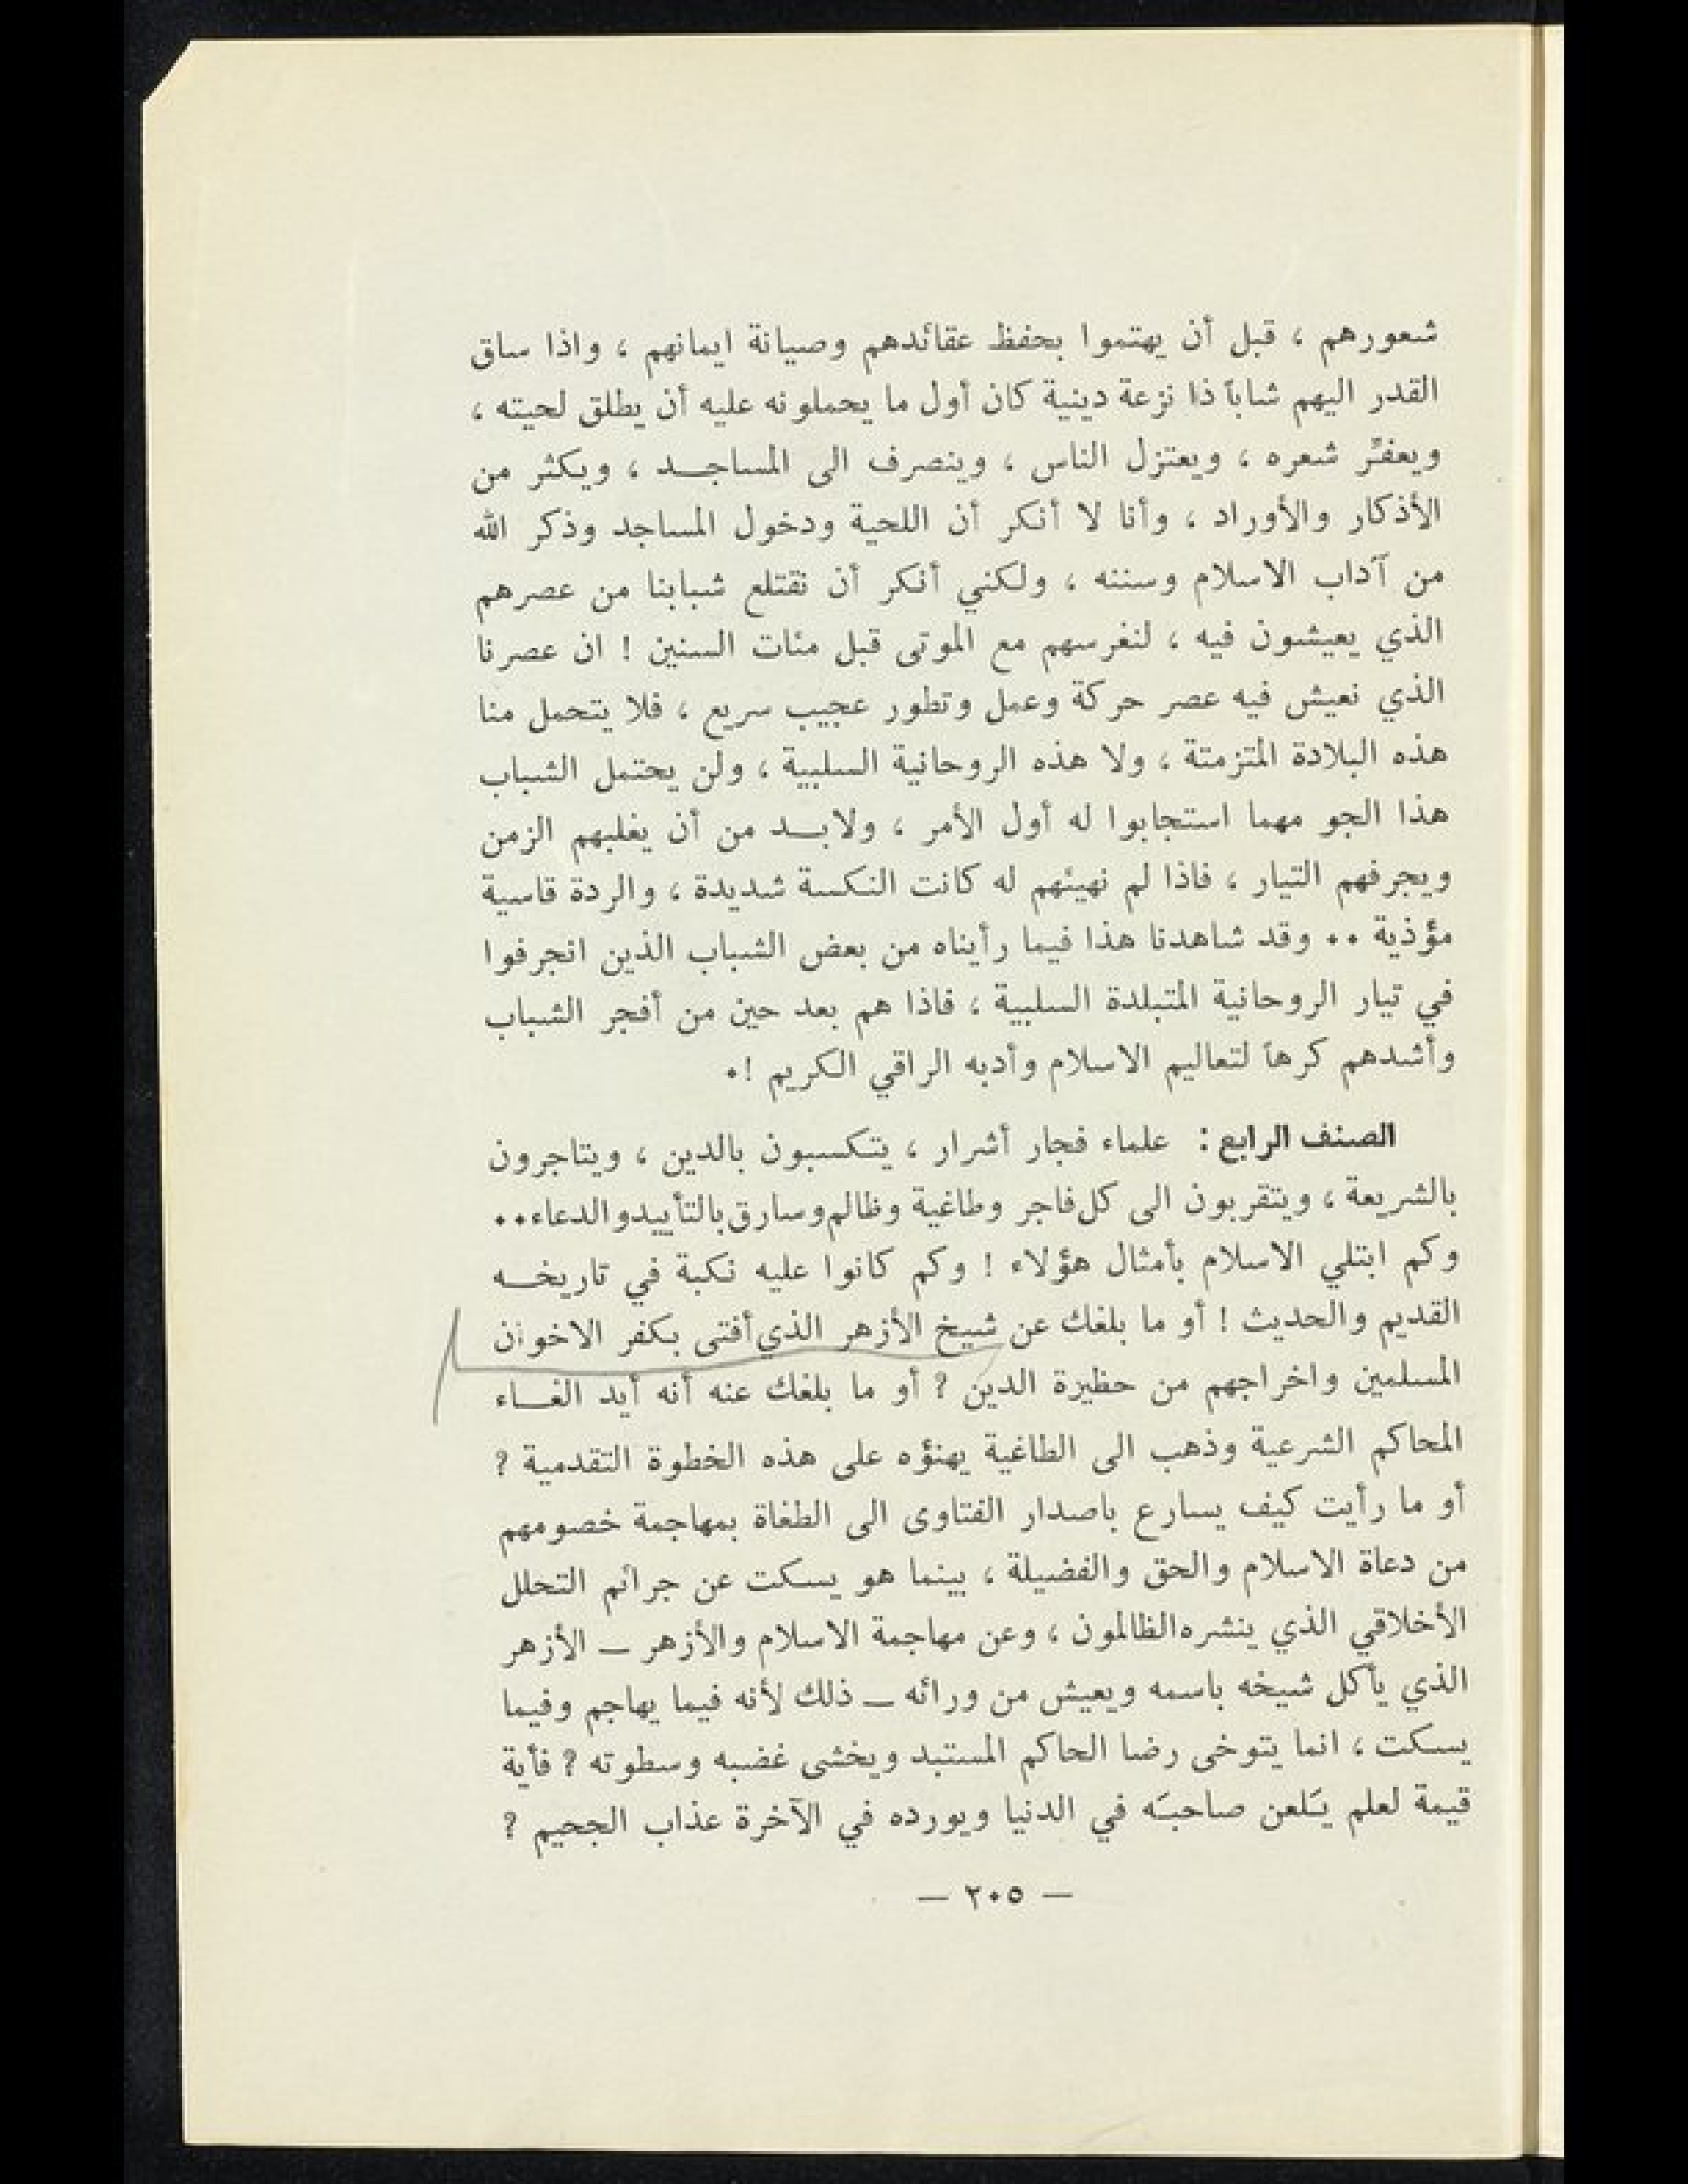 شعورهم ، قبل أن يهتموا بحفظ عقائدهم وصيانة ايمانهم ، واذا ساق
القدر اليهم شاباً ذا نزعة دينية كان أول ما يحملونه عليه أن يطلق لحيته ،
ويعفِّر شعره ، ويعتزل الناس ، وينصرف الى المساجد ، ويكثر من
الأذكار والأوراد ، وأنا لا أنكر أن اللحية ودخول المساجد وذكر الله
من آداب الاسلام وسننه ، ولكني أنكر أن نقتلع شبابنا من عصرهم
الذي يعيشون فيه ، لنغرسهم مع الموتى قبل مئات السنين ! ان عصرنا
الذي نعيش فيه عصر حركة وعمل وتطور عجيب سريع ، فلا يتحمل منا
هذه البلادة المتزمتة ، ولا هذه الروحانية السلبية ، ولن يحتمل الشباب
هذا الجو مهما استجابوا له أول الأمر ، ولابد من أن يغلبهم الزمن
ويجرفهم التيار ، فاذا لم نهيئهم له كانت النكسة شديدة ، والردة قاسية
مؤذية ٠٠ وقد شاهدنا هذا فيما رأيناه من بعض الشباب الذين انجرفوا
في تيار الروحانية المتبلدة السلبية ، فاذا هم بعد حين من أفجر الشباب
وأشدهم كرهاً لتعاليم الاسلام وأدبه الراقي الكريم !٠
الصنف الرابع : علماء فجار أشرار ، يتكسبون بالدين ، ويتاجرون
بالشريعة ، ويتقربون الى كل فاجر وطاغية وظالم وسارق بالتأييد والدعاء٠٠
وكم ابتلي الاسلام بأمثال هؤلاء ! وكم كانوا عليه نكبة في تاريخه
القديم والحديث ! أو ما بلغك عن شيخ الأزهر الذي أفتى بكفر الاخوان
المسلمين واخراجهم من حظيرة الدين ؟ أو ما بلغك عنه أنه أيد الغاء
المحاكم الشرعية وذهب الى الطاغية يهنؤه على هذه الخطوة التقدمية ؟
أو ما رأيت كيف يسارع باصدار الفتاوى الى الطغاة بمهاجمة خصومهم
من دعاة الاسلام والحق والفضيلة ، بينما هو يسكت عن جرائم التحلل
الأخلاقي الذي ينشره الظالمون ، وعن مهاجمة الاسلام والأزهر ــ الأزهر
الذي يأكل شيخه باسمه ويعيش من ورائه ــ ذلك لأنه فيما يهاجم وفيما
يسكت ، انما يتوخى رضا الحاكم المستبد ويخشى غضبه وسطوته ؟ فأية
قيمة لعلم يَلعن صاحبَه في الدنيا ويورده في الآخرة عذاب الجحيم ؟
— ٢٠٥ —